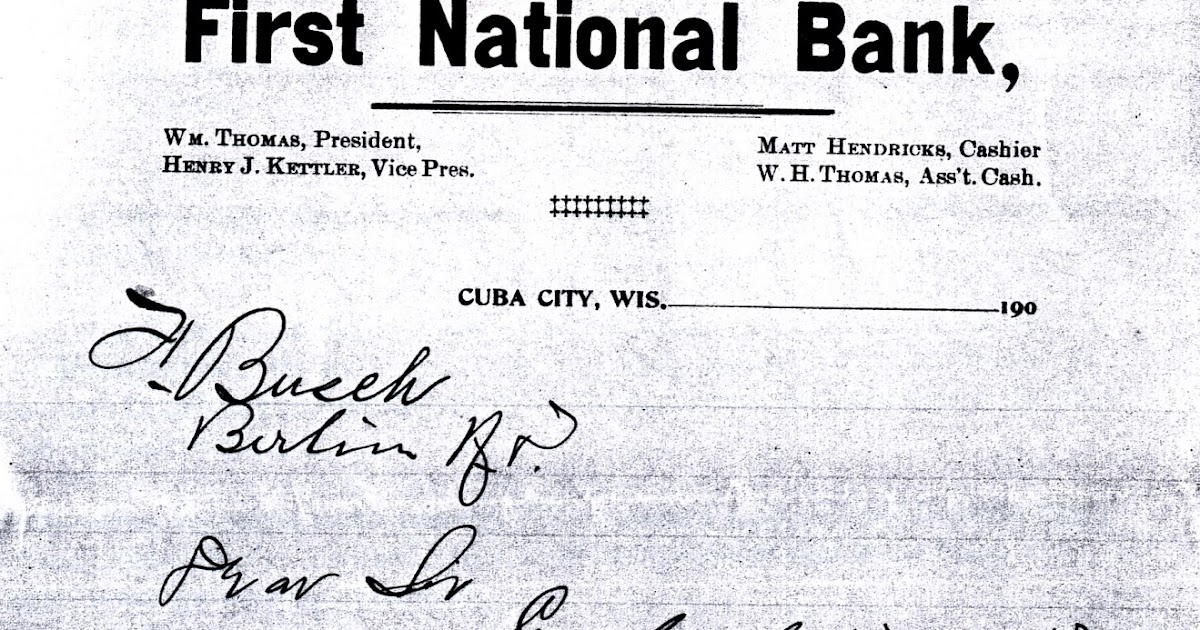 First National Bank,
WM. THOMAS, President,
HENRY J. KETTLER, Vice Pres.
MATT HENDRICKS, Cashier
W. H. THOMAS, Ass't. Cash.
‡‡‡‡‡‡‡‡‡
CUBA CITY, WIS. 190
F. Busch
Berlin
Dear Sir